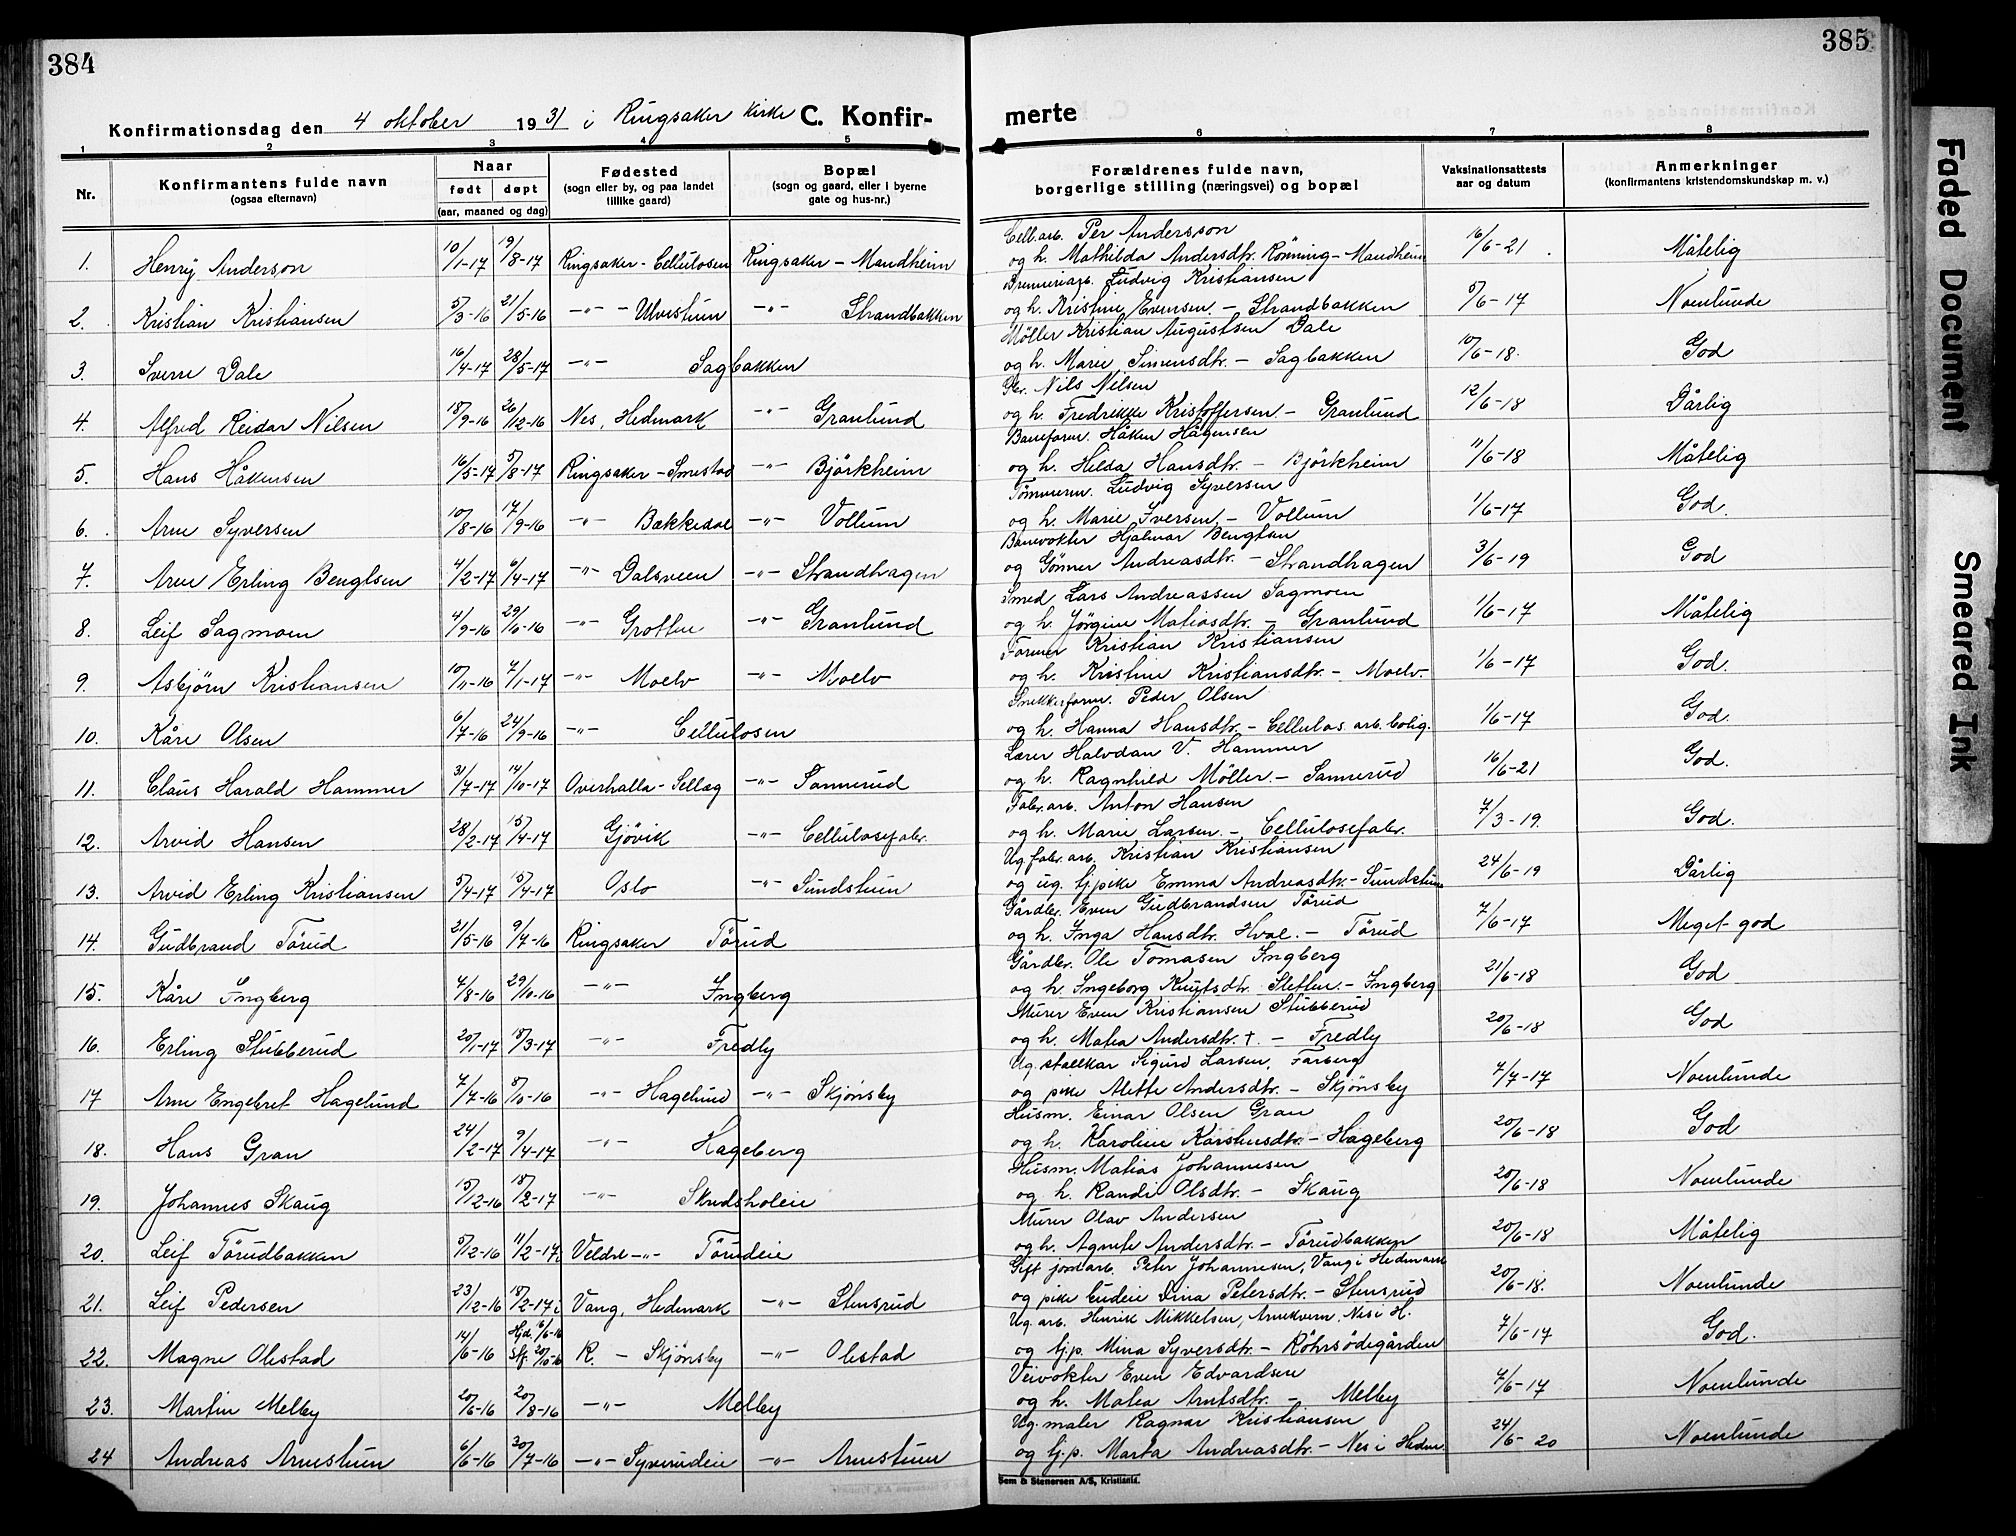 384
385
Konfirmationsdag den 4 oktober 1931 i Ringsaker Kirke C. Konfir- merte
1 2 3 4 5 6 7 8
Nr. Konfirmantens fulde navn (ogsaa efternavn) Naar født døpt (aar, maaned og dag) Fødested (sogn eller by, og paa landet tillike gaard) Bopæl (sogn og gaard, eller i byerne gate og hus-nr.) Forældrenes fulde navn, borgerlige stilling (næringsvei) og bopæl Vaksinationsattests aar og datum Anmerkninger (konfirmantens kristendomskundskap m. v.)
Cell.arb. Per Andersson
1. Henry Anderson 10/1-17 19/8-17 Ringsaker - Cellulosen Ringsaker - Mandheim og h. Mathilda Andersdtr. Rönning - Mandheim 16/6-21 Måtelig
Brenneriarb. Ludvig Kristiansen
2. Kristian Kristiansen 5/3-16 21/5-16 -"- Ulvestuen -"- Strandbakken og h. Kristine Evensen - Strandbakken 5/6-17 Noenlunde
Möller Kristian Augustsen Dale
3. Sverre Dale 16/4-17 28/5-17 -"- Sagbakken og h. Marie Simensdtr. - Sagbakken 10/6-18. God
Nils Nilsen
4. Alfred Reidar Nilsen 18/9-16 26/12-16 Nes, Hedmark -"- Granlund og h. Fredrikke Kristoffersen - Granlund 12/6-18 Dårlig
Baneform. Håken Hågensen
5. Hans Håkensen 16/5-17 5/8-17 Ringsaker - Smestad -"- Björkheim og h. Hilda Hansdtr. - Björkheim 11/6-18 Måtelig
Tömmerm. Ludvig Syversen
6. Arne Syversen 10/8-16 17/9-16 -"- Bækkedal -"- Vollum og h. Marie Iversen - Vollum 1/6-17 God.
Banevokter Hjalmar Bengtsen
7. Arve Erling Bengtsen 4/2-17 6/4-17 -"- Dalsveen -"- Strandhagen og Gönner Andreasdtr. - Strandhagen 3/6-19 God
Smed Lars Andreassen Sagmoen
8. Leif Sagmoen 4/9-16 29/10-16 -"- Grotten -"- Granlund og h. Jörgine Matiasdtr. - Granlund 1/6-17 Måtelig
Former Kristian Kristiansen
9. Asbjörn Kristiansen 10/11-16 7/1-17 -"- Moelv -"- Moelv og h. Kristine Kristiansdtr. - Moelv. 1/6-17 God.
Snekkerform. Peder Olsen
10. Kåre Olsen 6/7-16 24/9-16 -"- Cellulosen og h. Hanna Hansdtr. - Cellulos. arb. bolig. 1/6-17 God.
Lærer Halvdan V. Hammer
11. Claus Harald Hammer 31/7-17 14/10-17 Overhalla - Sellæg -"- Sannerud og h. Ragnhild Möller. - Sannerud 16/6-21 God.
Fabr.arb. Anton Hansen
12. Arvid Hansen 28/2-17 15/4-17 Gjövik -"- Cellulosefabr. og h. Marie Larsen. - Cellulosefabr. 7/3-19. God.
Ug. fabr.arb. Kristian Kristiansen
13. Arvid Erling Kristiansen 5/4-17 15/4-17 Oslo -"- Sundstuen og ug. tj.pike Emma Andreasdtr. - Sundstuen 24/6-19 Dårlig
Gårdbr. Even Gudbrandsen Törud
14. Gudbrand Törud 21/5-16 9/7-16 Ringsaker Törud og h. Inga Hansdtr. Hval. - Törud 7/6-17 Meget god
Gårdbr. Ole Tomasen Ingberg
15. Kåre Ingberg 4/8-16 29/10-16 -"- Ingberg og h. Ingeborg Knutsdtr. Sletten - Ingberg 21/6-18 God
Murer Even Kristiansen Stubberud
16. Erling Stubberud 20/1-17 18/3-17 -"- Fredly og h. Matea Andersdtr. † - Fredly 20/6-18 God
Ug. stallkar Sigurd Larsen, Farberg
17 Arne Engebret Hagelund 7/7-16 8/10-16 -"- Hagelund -"- Skjönsby og pike Alette Andersdtr. - Skjönsby 7/7-17 Noenlunde
Husm. Einar Olsen Gran
18. Hans Gran 24/2-17 9/4-17 -"- Hageberg og h. Karoline Karstensdtr. - Hageberg 20/6-18 God
Husm. Matias Johannesen
19. Johannes Skaug 15/12-16 18/2-17 -"- Skredsholeie og h. Randi Olsdtr. - Skaug 20/6-18 Noenlunde
Murer Olav Andersen
20. Leif Törudbakken 5/12-16 11/2-17 Veldre -"- Törudeie og h. Agnete Andersdtr. - Törudbakken 20/6-18 Måtelig
Gift jordarb. Peter Johannesen, Vang i Hedmark
21. Leif Pedersen 23/12-16 18/2-17 Vang, Hedmark -"- Stensrud og pike Dina Petersdtr. - Stensrud 20/6-18. Noenlunde
Ug. arb. Henrik Mikkelsen, Arnekvern, Nes i H.
22. Magne Olestad 14/6-16 Hjd. 16/6-16 Stf. 20/10-16 R. - Skjönsby -"- Olestad og tj.p. Mina Syversdtr. - Röhrsödegården 7/6-17 God.
Veivokter Even Edvardsen
23. Martin Melby 20/6-16 20/8-16 -"- Melby og h. Matea Arntsdtr. - Melby 7/6-17 Noenlunde
Ug. maler Ragnar Kristiansen
24 Andreas Arnestuen 6/6-16 30/7-16 -"- Syverudeie -"- Arnestuen og tj.p. Marta Andreasdtr. - Nes i Hedm. 24/6-20 Noenlunde
Sem & Stenersen A/S, Kristiania.
Faded Document
Smeared Ink